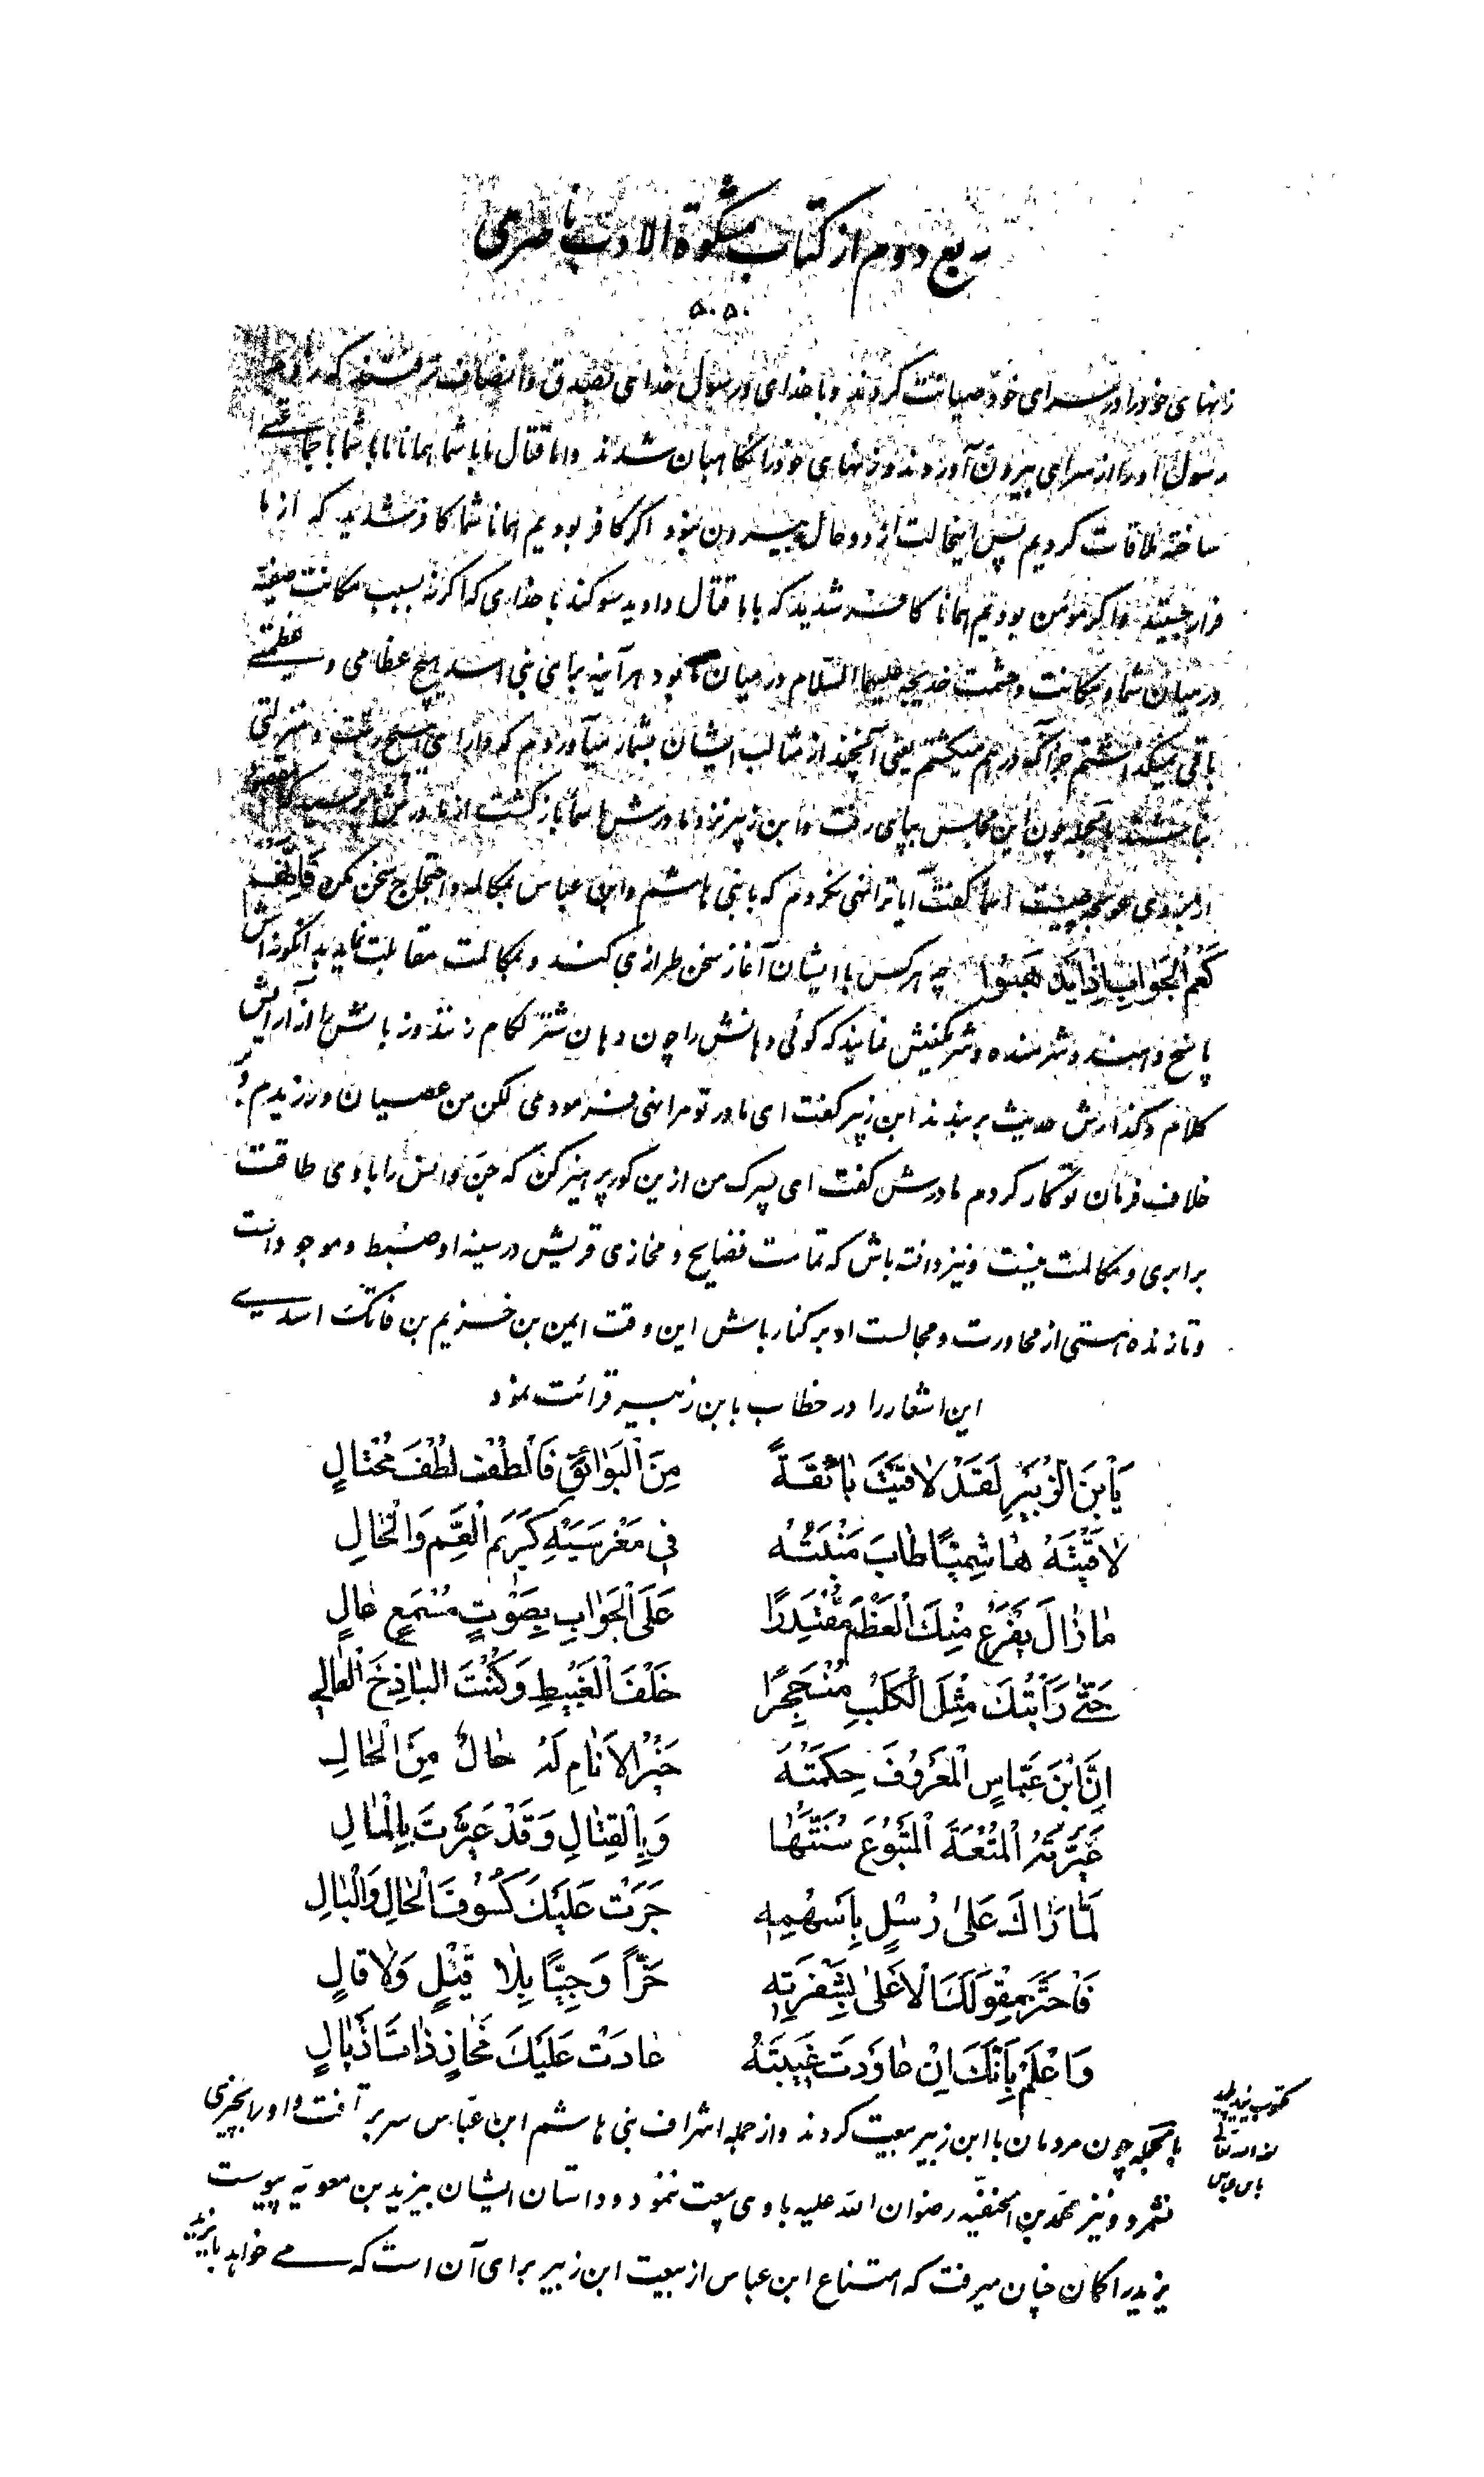 ربع دوم از کتاب مشکوة الادب ناصری
۵۰۵۰
زنهای خود را در سرای خود صیانت کردند و با خدای و رسول خدای بصدق و انصاف نرفتند که
رسول او را از سرای بیرون آوردند و زنهای خود را نگاهبان شدند و اما قتال ما با شما همانا ما با شما با
ساخته ملاقات کردیم پس اینحالت از دو حال بیرون نبود اگر کافر بودیم همانا شما کافر شدید که از ما
فرار جستید و اگر مؤمن بودیم همانا کافر شدید که با ما قتال دادید سوگند با خدای که اگر نه بسبب مکانت صفیه
در میان شما و مکانت و حشمت خدیجه علیهما السلام در میان ما نبود هرآینه برای بنی اسد هیچ عظامی و عظمتی
باقی نمیگذاشتم جز آنکه در هم میشکستم یعنی آنچند از مثالب ایشان بشمار میآوردم که دارای هیچ رتبت و منزلتی
نباشند بالجمله چون این مجلس بپای رفت و ابن زبیر نزد مادرش اسما بازگشت از مادرش پرسید که
از بردی عوسجه چیست اسما گفت آیا ترا نهی نکردم که با بنی هاشم و ابن عباس بمکالمه و احتجاج سخن مکن فَاِنَّهُم
كُعُمُ الْجَوابِ اِذا بُدِهُوا چه هرکس با ایشان آغاز سخن طرازی کند و بمکالمت مقابلت نماید بدانگونه‌اش
پاسخ دهند و شرمنده و شرمگینش نمایند که گوئی دهانش را چون دهان شتر لگام زنند و زبانش را از آرایش
کلام و گذارش حدیث بربندند ابن زبیر گفت ای مادر تو مرا نهی فرمودی لکن من عصیان ورزیدم و بر
خلاف فرمان تو کار کردم مادرش گفت ای پسرک من ازین کور پرهیز کن که جن و انس را با وی طاقت
برابری و مکالمت نیست و نیز دانسته باش که تمامت فضایح و مخازی قریش در سینه او ضبط و موجود است
و تا زنده هستی از محاورت و مجالست او بر کنار باش این وقت ایمن بن خزیم بن فاتک اسدی
این اشعار را در خطاب بابن زبیر قرائت نمود
يَا بْنَ الزُّبَيْرِ لَقَدْ لاقَيْتَ بائِقَةً مِنَ الْبَوائِقِ فَالْطُفْ لُطْفَ مُحْتالٍ
لاقَيْتَهُ هاشِمِيًّا طابَ مَنْبَتُهُ في مَغْرِسَيْهِ كَريمَ الْعَمِّ وَالْخالِ
ما زالَ يَقْرَعُ مِنْكَ الْعَظْمَ مُقْتَدِرًا عَلَى الْجَوابِ بِصَوْتٍ مُسْمِعٍ عالٍ
حَتّى رَأَيْتُكَ مِثْلَ الْكَلْبِ مُنْجَحِرًا خَلْفَ الْغَبيطِ وَكُنْتَ الْباذِخَ الْعالي
اِنَّ ابْنَ عَبّاسٍ الْمَعْرُوفَ حِكْمَتُهُ خَيْرُ الْاَنامِ لَهُ حالٌ مِنَ الْحالِ
عَيَّرْتَهُ الْمُتْعَةَ الْمَتْبُوعَ سُنَّتُها وَبِالْقِتالِ وَقَدْ عَيَّرْتَ بِالْمالِ
لَمّا رَماكَ عَلى رُسْلٍ بِاَسْهُمِهِ جَرَتْ عَلَيْكَ كُسُوفُ الْحالِ وَالْبالِ
فَاحْتَزَّ مِقْوَلَكَ الْاَعْلى بِشَفْرَتِهِ حَزًّا وَحِيًّا بِلا قِيْلٍ وَلا قالٍ
وَاعْلَمْ بِاَنَّكَ اِنْ عاوَدْتَ غَيْبَتَهُ عادَتْ عَلَيْكَ مَخازٍ ذاتَ اَذْيالٍ
بالجمله چون مردمان با ابن زبیر بیعت کردند و از جمله اشراف بنی هاشم ابن عباس سر بر تافت و او را بچیزی
نشمرد و نیز محمد بن الحنفیه رضوان الله علیه با وی بیعت ننمود و داستان ایشان بیزید بن معویه پیوست
یزید را گمان چنان میرفت که امتناع ابن عباس از بیعت ابن زبیر برای آن است که می خواهد با یزید
مکتوب یزید پلید
لعنه الله تعالی
بابن عباس